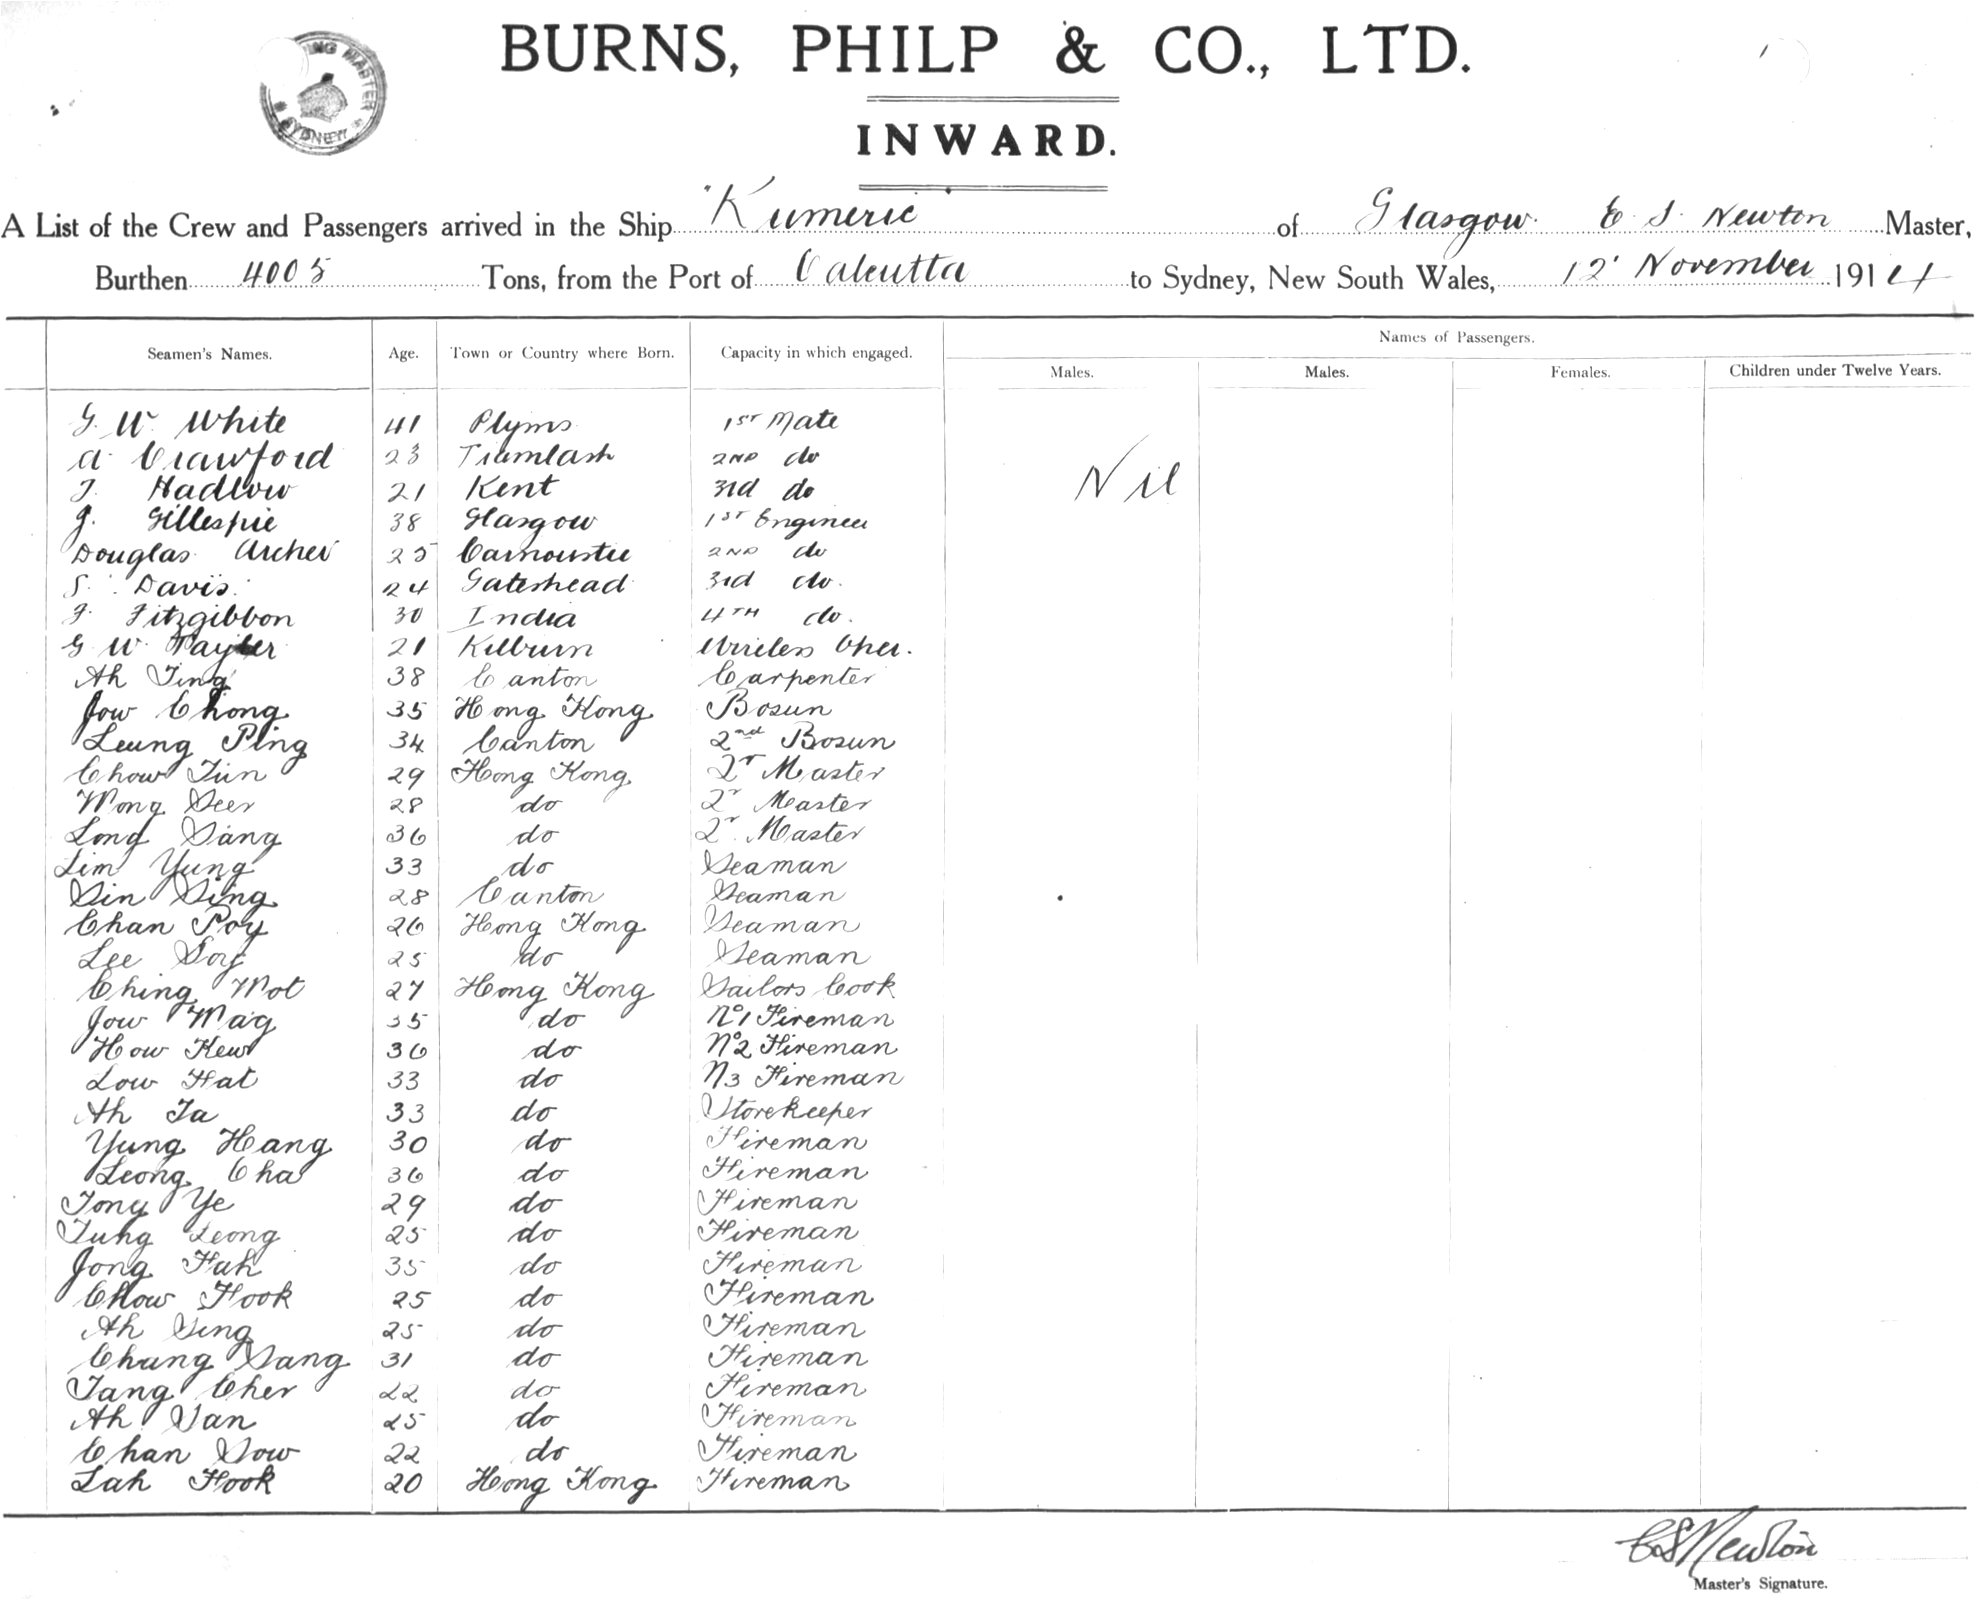 BURNS, PHILP & CO., LTD.
INWARD.
SYDNEY
A List of the Crew and Passengers arrived in the Ship "Kumeric of Glasgow. E. S. Newton Master,
Burthen 4005 Tons, from the Port of Calcutta to Sydney, New South Wales, 12' November 1914
Names of Passengers.
Seamen's Names. Age. Town or Country where Born. Capacity in which engaged. Males. Males. Females. Children under Twelve Years.
G. W. White 41 Plyms 1st Mate
A. Crawford 23 2ND do Nil
J. Hadlow 21 Kent 3rd do
J. Gillespie 38 Glasgow 1ST Engineer
Douglas Archer 25 Carnoustie 2ND do
S. Davis 24 Gateshead 3rd do.
F. Fitzgibbon 30 India 4TH do.
G W. Tayler 21 Kilburn Wireless Oper.
Ah Ting 38 Canton Carpenter
Jow Chong 35 Hong Kong Bosun
Leung Ping 34 Canton 2nd Bosun
Chow Tun 29 Hong Kong 2r Master
Wong Seer 28 do 2r Master
Long Sang 36 do 2r. Master
Lim Yung 33 do Seaman
Sin Sing 28 Canton Seaman
Chan Poy 26 Hong Kong Seaman
Lee Soy 25 do Seaman
Ching Mot 27 Hong Kong Sailors Cook
Jow Mag 35 do No1 Fireman
How Kew 36 do No2 Fireman
Low Fat 33 do N3 Fireman
Ah Ta 33 do Storekeeper
Yung Hang 30 do Fireman
Leong Cha 36 do Fireman
Tong Ye 29 do Fireman
Tung Leong 25 do Fireman
Jong Fah 35 do Fireman
Chow Fook 25 do Fireman
Ah Sing 25 do Fireman
Chung Sang 31 do Fireman
Tang Cher 22 do Fireman
Ah San 25 do Fireman
Chan Sow 22 do Fireman
Lah Fook 20 Hong Kong Fireman
ES Newton
Master's Signature.